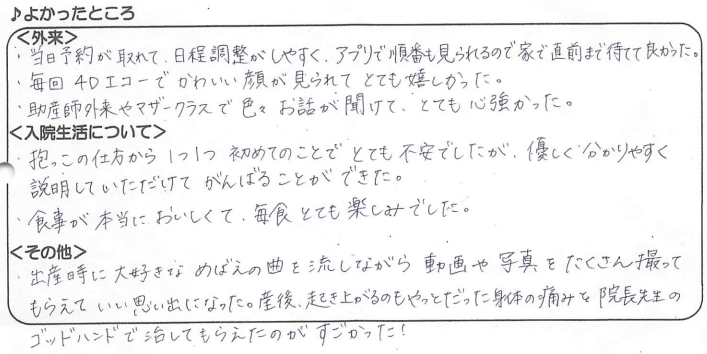 ♪よかったところ
<外来>
・当日予約が取れて、日程調整がしやすく、アプリで順番も見られるので家で直前まで待てて良かった。
・毎回4Dエコーでかわいい顔が見られてとても嬉しかった。
・助産師外来やマザークラスで色々お話が聞けて、とても心強かった。
<入院生活について>
・抱っこの仕方から1つ1つ初めてのことでとても不安でしたが、優しく分かりやすく
説明していただけてがんばることができた。
・食事が本当においしくて、毎食とても楽しみでした。
<その他>
・出産時に大好きなめばえの曲を流しながら動画や写真をたくさん撮って
もらえていい思い出になった。産後、起き上がるのもやっとだった身体の痛みを院長先生の
ゴッドハンドで治してもらえたのがすごかった!